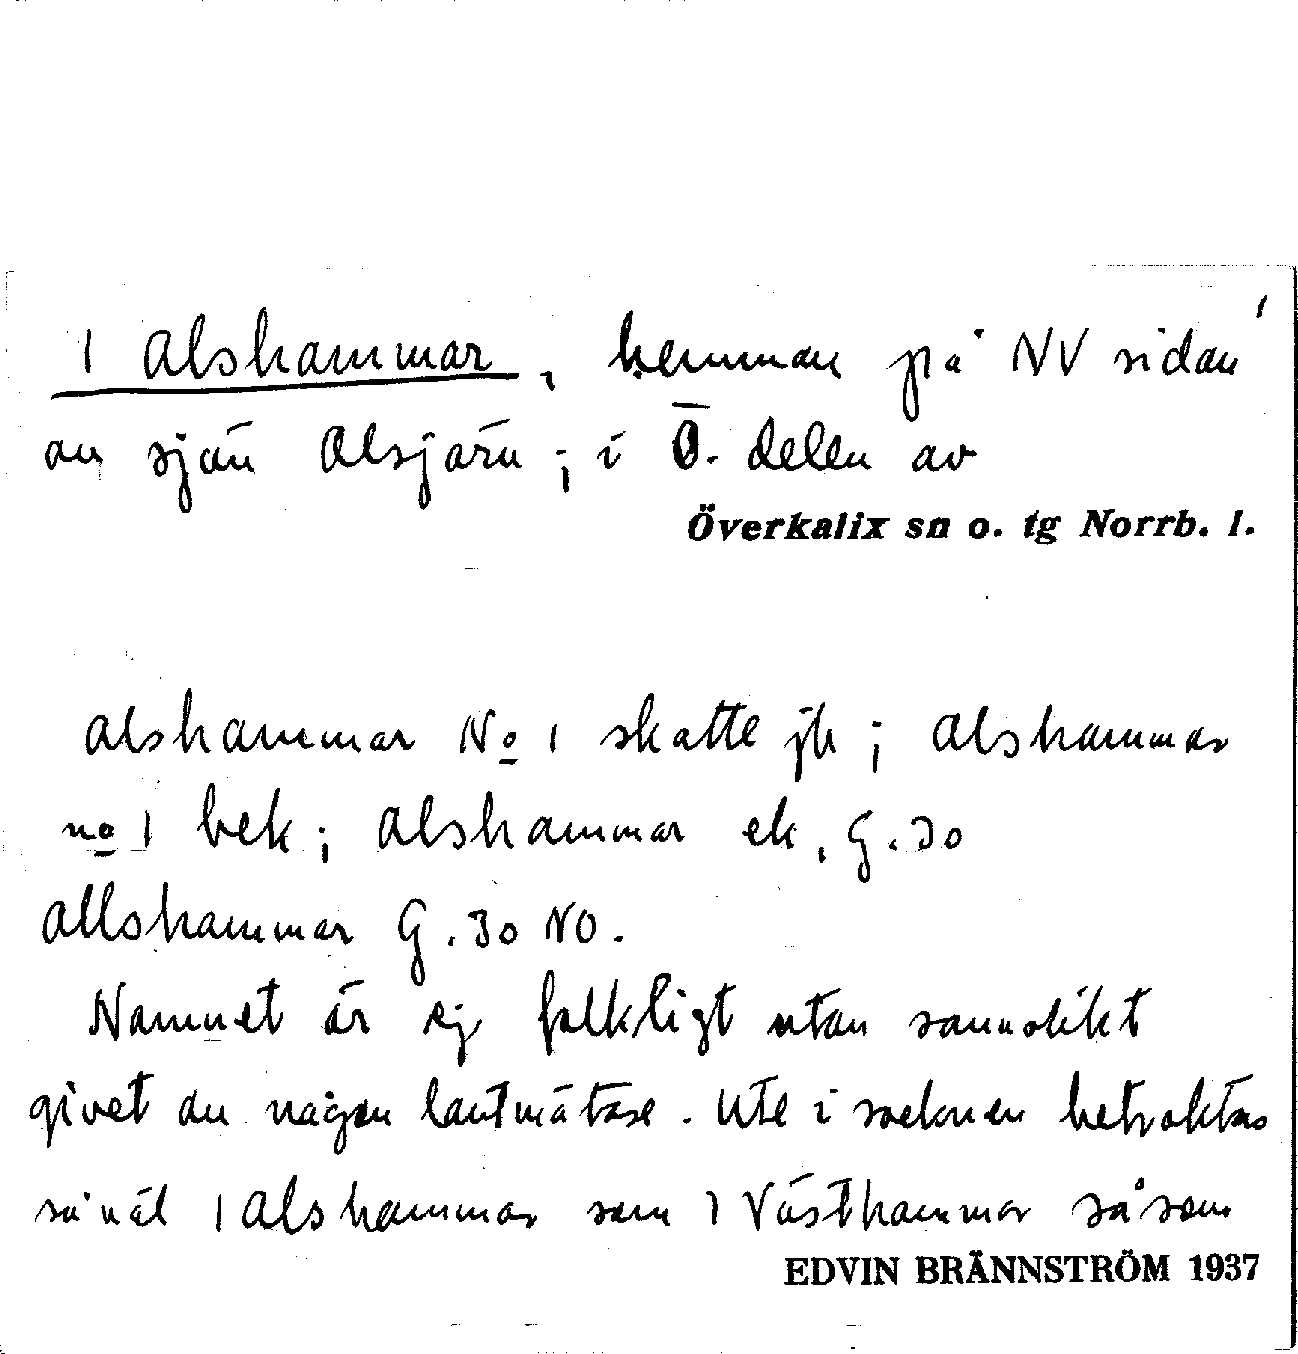 1
1 Alshammar, hemman på NV sidan
av sjön Alsjärv; i Ö. delen av
Överkalix sn o. tg Norrb. l.
Alshammar No 1 skatte jb; Alshammar
no 1 bek; Alshammar ek, G. 30
Allshammar G. 30 NO.
Namnet är ej folkligt utan sannolikt
givet av någon lantmätare. Ute i socknen betraktas
såväl 1 Alshammar som 1 Västhammar såsom
EDVIN BRÄNNSTRÖM 1937